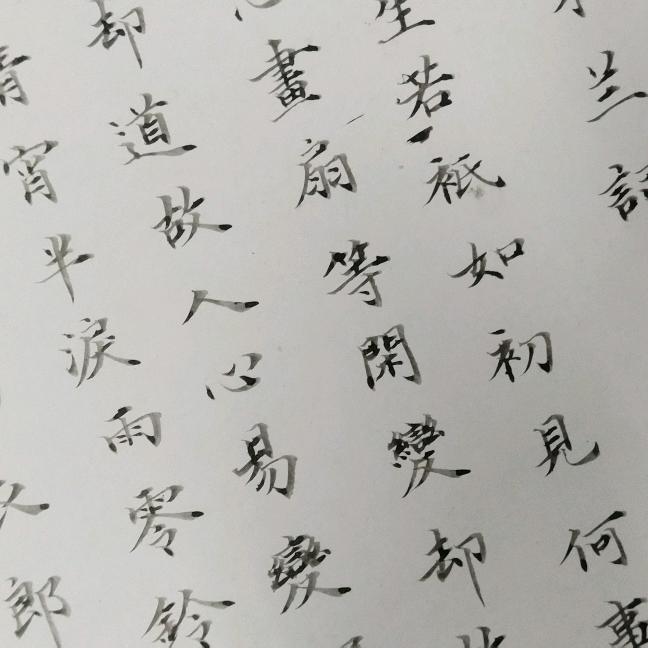 兰
生若祇如初見何事
畫扇等閑變却
却道故人心易變
宵半淚雨零鈴
郎